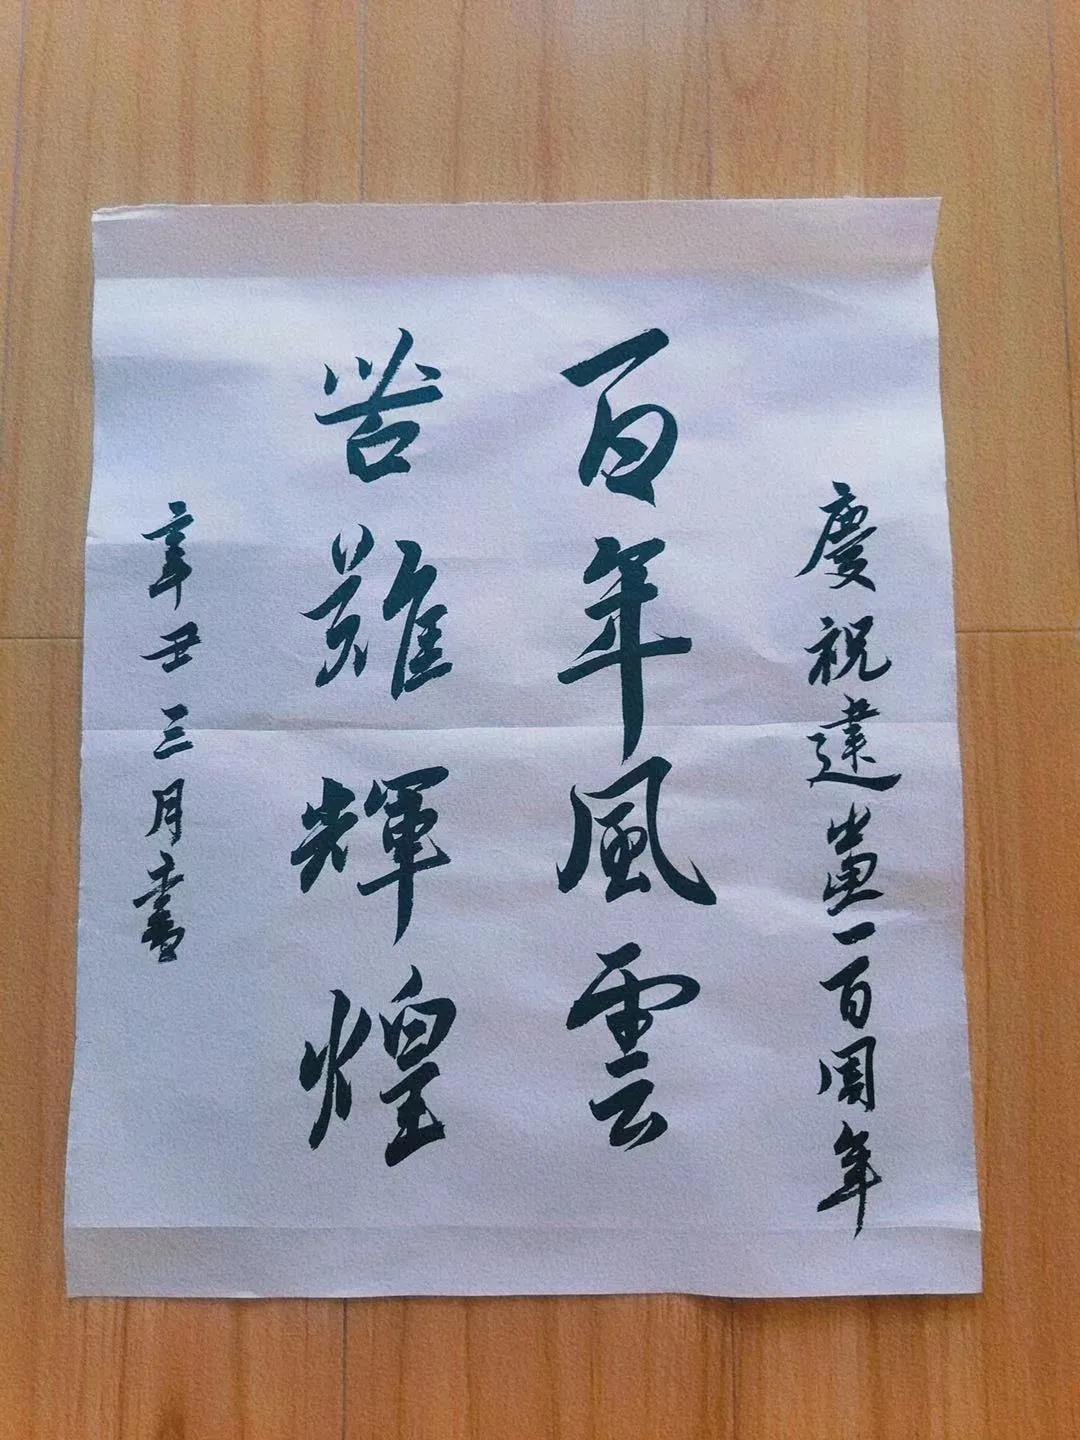 慶祝建黨一百周年
百年風雲
苦難輝煌
辛丑三月書